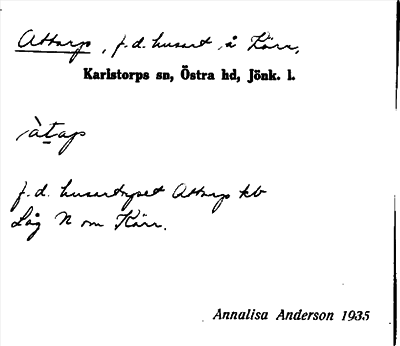 Attarp, f.d. husart., å Kärr,
Karlstorps sn, Östra hd, Jönk. l.
àt̲ap
f.d. husartorpet Attarp kb
Låg N om Kärr.
Annalisa Anderson 1935